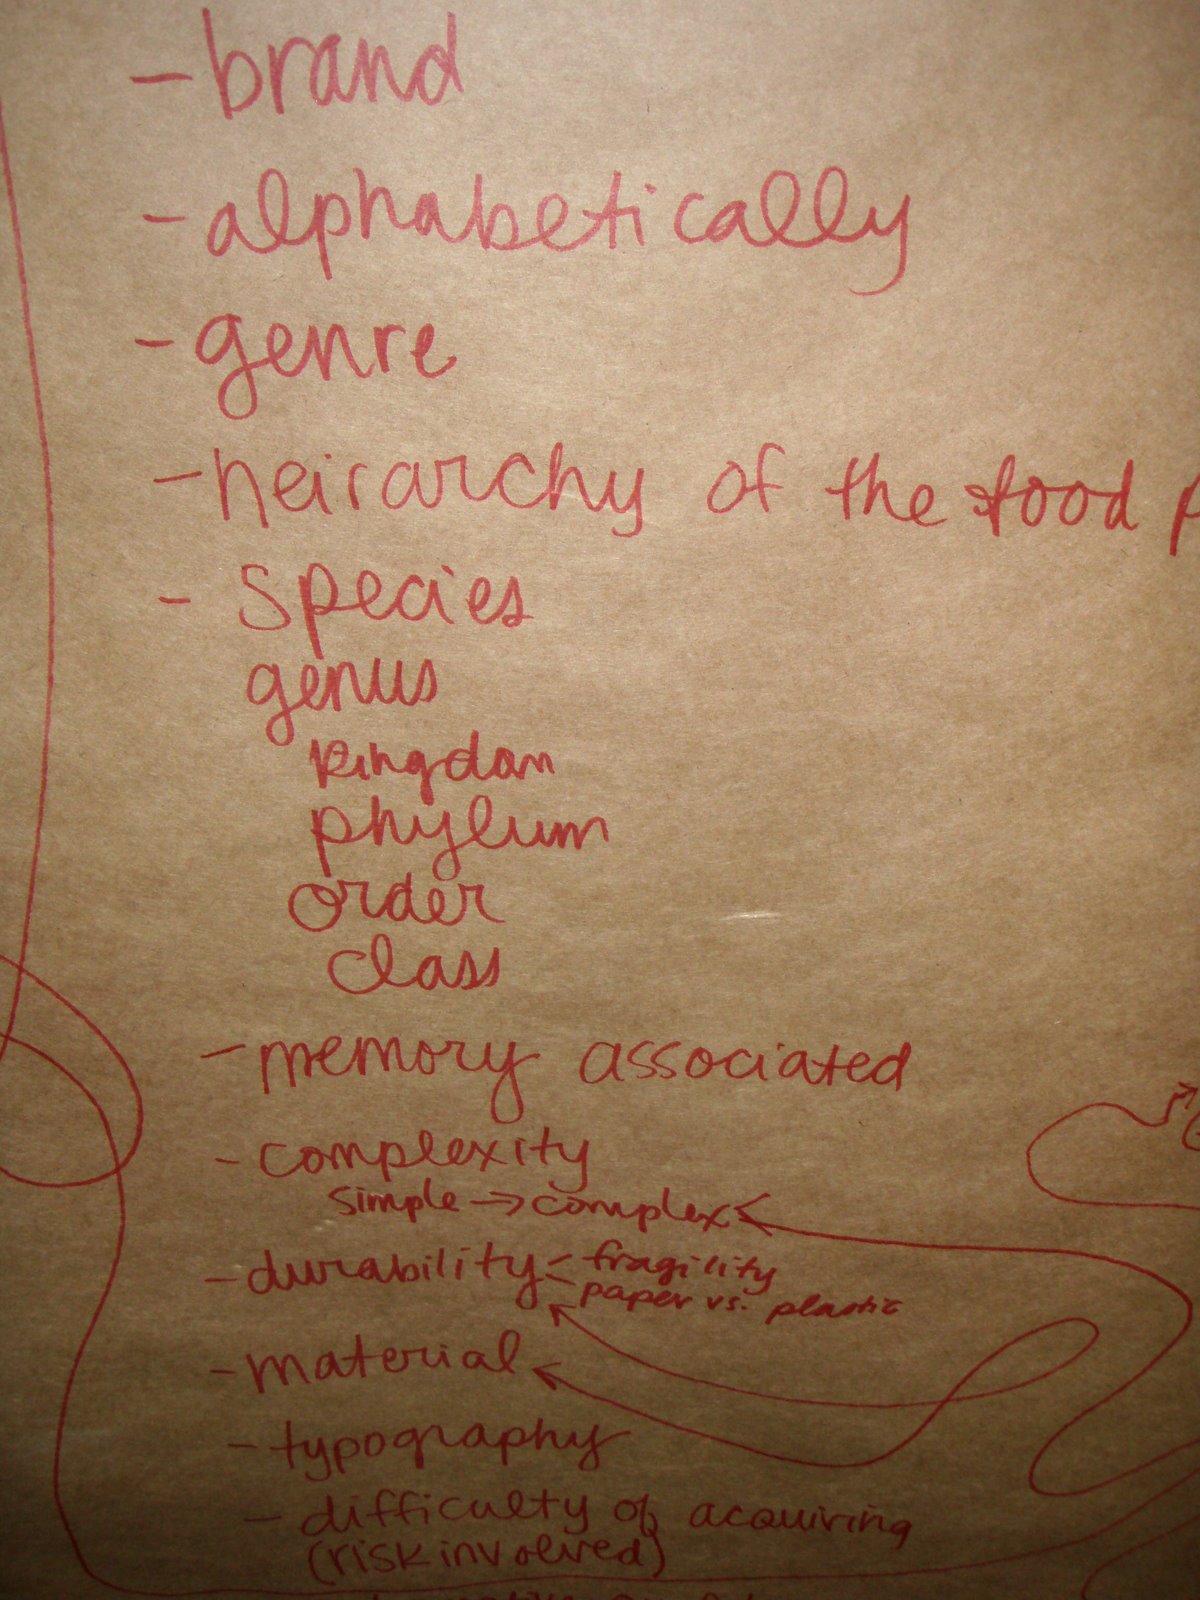 - brand
- alphabetically
- genre
- heirarchy of the food
- species
genus
kingdom
phylum
order
class
- memory associated
- complexity
simple → complex
- durability - fragility
- paper vs. plastic
- material
- typography
- difficulty of acquiring
(risk involved)